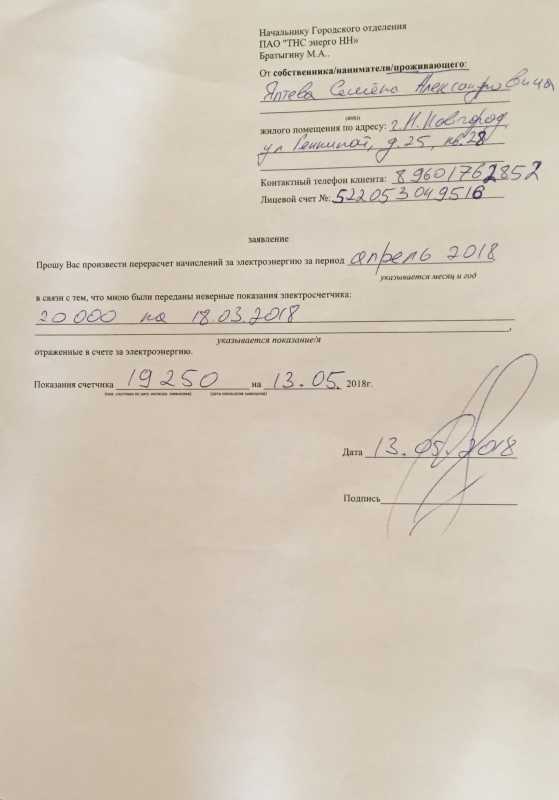 Начальнику Городского отделения
ПАО "ТНС энерго НН»
Братыгину М.А..
От собственника/нанимателя/проживающего:
Яптева Семёна Александровича
(ФИО)
жилого помещения по адресу: г. Н. Новгород,
ул д. 25, кв. 28
Контактный телефон клиента: 89601762852
Лицевой счет №: 522053049516
заявление
Прошу Вас произвести перерасчет начислений за электроэнергию за период апрель 2018
указывается месяц и год
в связи с тем, что мною были переданы неверные показания электросчетчика:
20 000 на 18.03.2018
,
указывается показание/я
отраженные в счете за электроэнергию.
Показания счетчика 19250 на 13.05. 2018г.
Дата 13.05.2018
Подпись